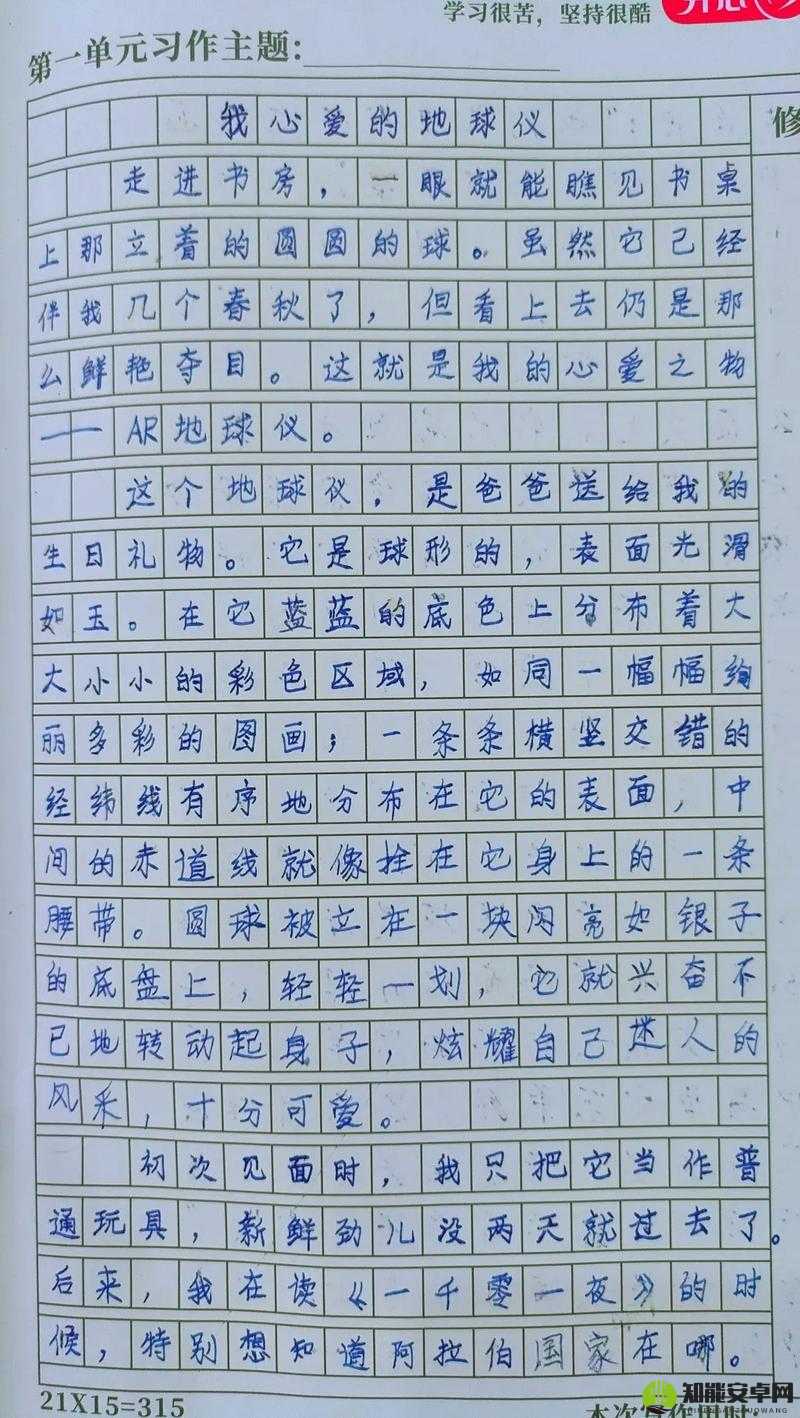 学习很苦，坚持很酷
第一单元习作主题：
修
我心爱的地球仪
走进书房，一眼就能瞧见书桌
上那立着的圆圆的球。虽然它已经
伴我几个春秋了，但看上去仍是那
么鲜艳夺目。这就是我的心爱之物
——AR地球仪。
这个地球仪，是爸爸送给我的
生日礼物。它是球形的，表面光滑
如玉。在它蓝蓝的底色上分布着大
大小小的彩色区域，如同一幅幅绚
丽多彩的图画；一条条横竖交错的
经纬线有序地分布在它的表面，中
间的赤道线就像拴在它身上的一条
腰带。圆球被立在一块闪亮如银子
的底盘上，轻轻一划，它就兴奋不
已地转动起身子，炫耀自己迷人的
风采，十分可爱。
初次见面时，我只把它当作普
通玩具，新鲜劲儿没两天就过去了。
后来，我在读《一千零一夜》的时
候，特别想知道阿拉伯国家在哪。
21X15=315
知能安卓网